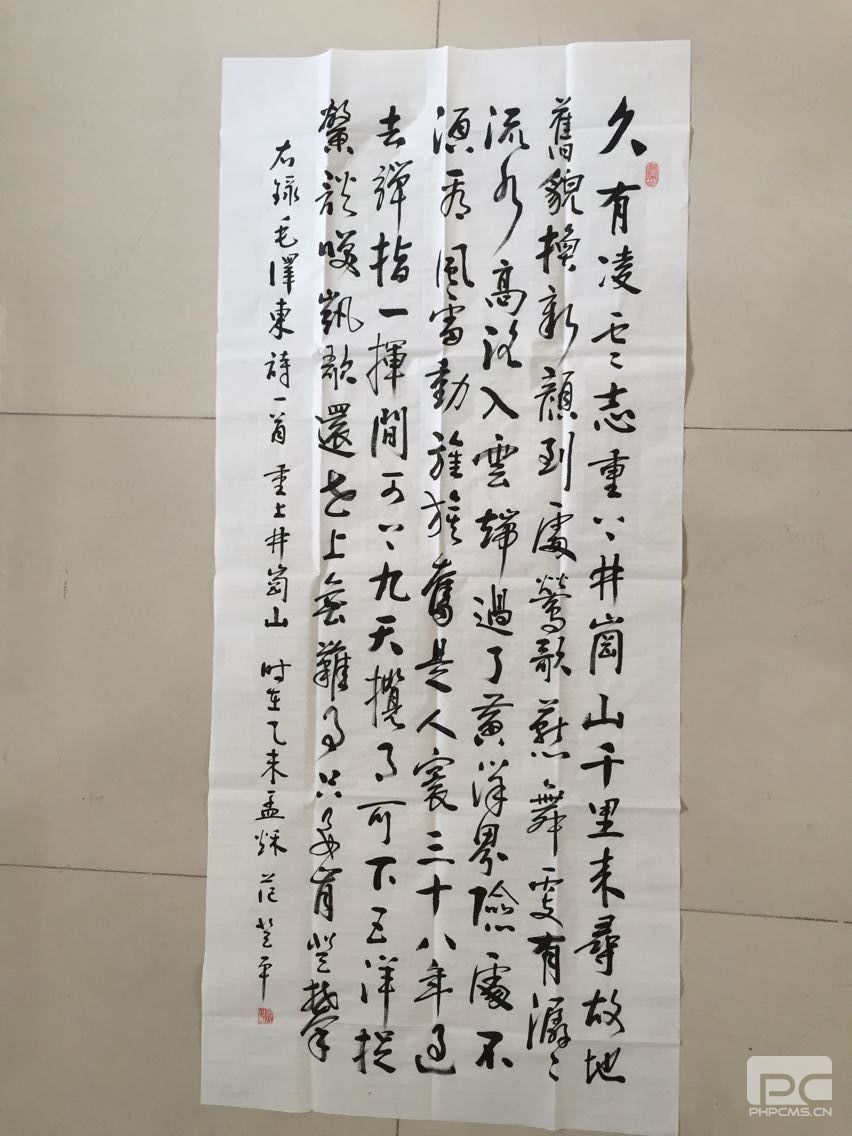 久有凌云志重上井崗山千里来尋故地
舊貌換新顔到處鶯歌燕舞更有潺〻
流水高路入雲端過了黄洋界險處不
須看風雷動旌旗奮是人寰三十八年過
去彈指一揮間可上九天攬月可下五洋捉
鱉談笑凱歌還世上無難事只要肯登攀
右録毛澤東詩一首 重上井崗山 时在乙未孟秌 范 平
PC
PHPCMS.CN